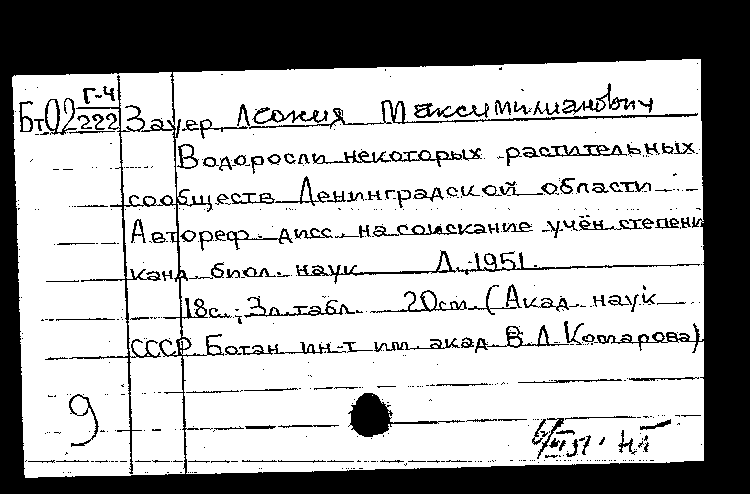 Г-4
Бт02 222 Зауер, Леония Максимилианович
Водоросли некоторых растительных
сообществ Ленинградской области
Автореф. дисс. на соискание учён. степени
канд. биол. наук Л., 1951.
18с.; 3л. табл. 20cm. (Акад. наук
СССР. Ботан ин-т им. акад. В Л Комарова)
9